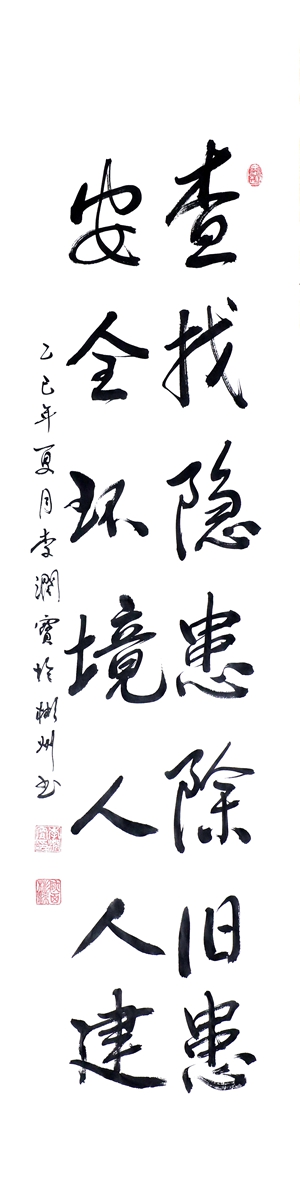 查找隐患除旧患
安全环境人人建
乙巳年夏月李润宝于彬州书